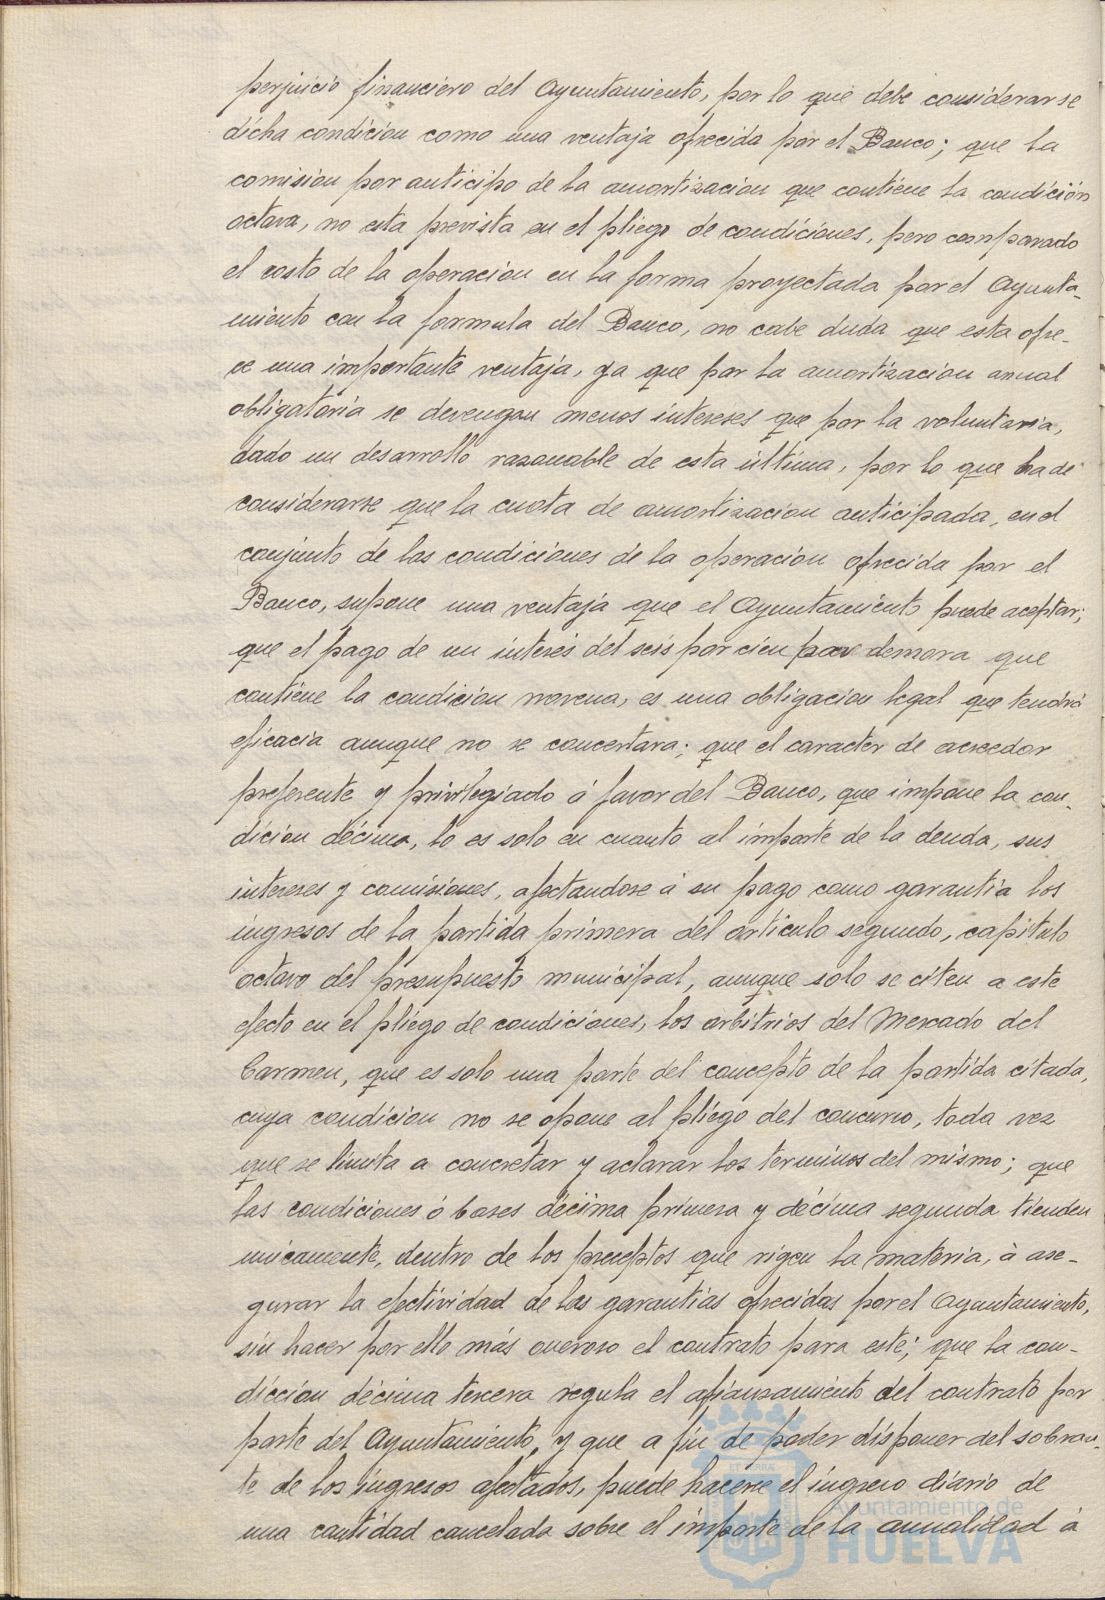 perjuicio financiero del Ayuntamiento, por lo que debe considerarse
dicha condicion como una ventaja ofrecida por el Banco; que la
comision por anticipo de la amortizacion que contiene la condición
octava, no esta prevista en el pliego de condiciones, pero comparado
el costo de la operacion en la forma proyectada por el Ayunta-
miento con la formula del Banco, no cabe duda que esta ofre-
ce una importante ventaja, ya que por la amortizacion anual
obligatoria se devengan menos intereses que por la voluntaria,
dado un desarrollo razonable de esta última, por lo que ha de
considerarse que la cuota de amortizacion anticipada, en el
conjunto de las condiciones de la operacion ofrecida por el
Banco, supone una ventaja que el Ayuntamiento puede aceptar;
que el pago de un interés del seis por cien por demora que
contiene la condicion novena, es una obligacion legal que tendrá
eficacia aunque no se concertara; que el caracter de acreedor
preferente y privilegiado á favor del Banco, que impone la con-
dicion décima, lo es solo en cuanto al importe de la deuda, sus
intereses y comisiones, afectandose á su pago como garantia los
ingresos de la partida primera del articulo segundo, capitulo
octavo del presupuesto municipal, aunque solo se citen a este
efecto en el pliego de condiciones, los arbitrios del Mercado del
Carmen, que es solo una parte del concepto de la partida citada,
cuya condicion no se opone al pliego del concurso, toda vez
que se limita a concretar y aclarar los terminos del mismo; que
las condiciones ó bases décima primera y décima segunda tienden
unicamente, dentro de los preceptos que rigen la materia, à ase-
gurar la efectividad de las garantias ofrecidas por el Ayuntamiento,
sin hacer por ello más oneroso el contrato para este; que la con-
diccion décima tercera regula el afianzamiento del contrato por
parte del Ayuntamiento, y que a fin de poder disponer del sobran-
te de los ingresos afectados, puede hacerse el ingreso diario de
una cantidad cancelada sobre el importe de la anualidad á
Ayuntamiento de
HUELVA